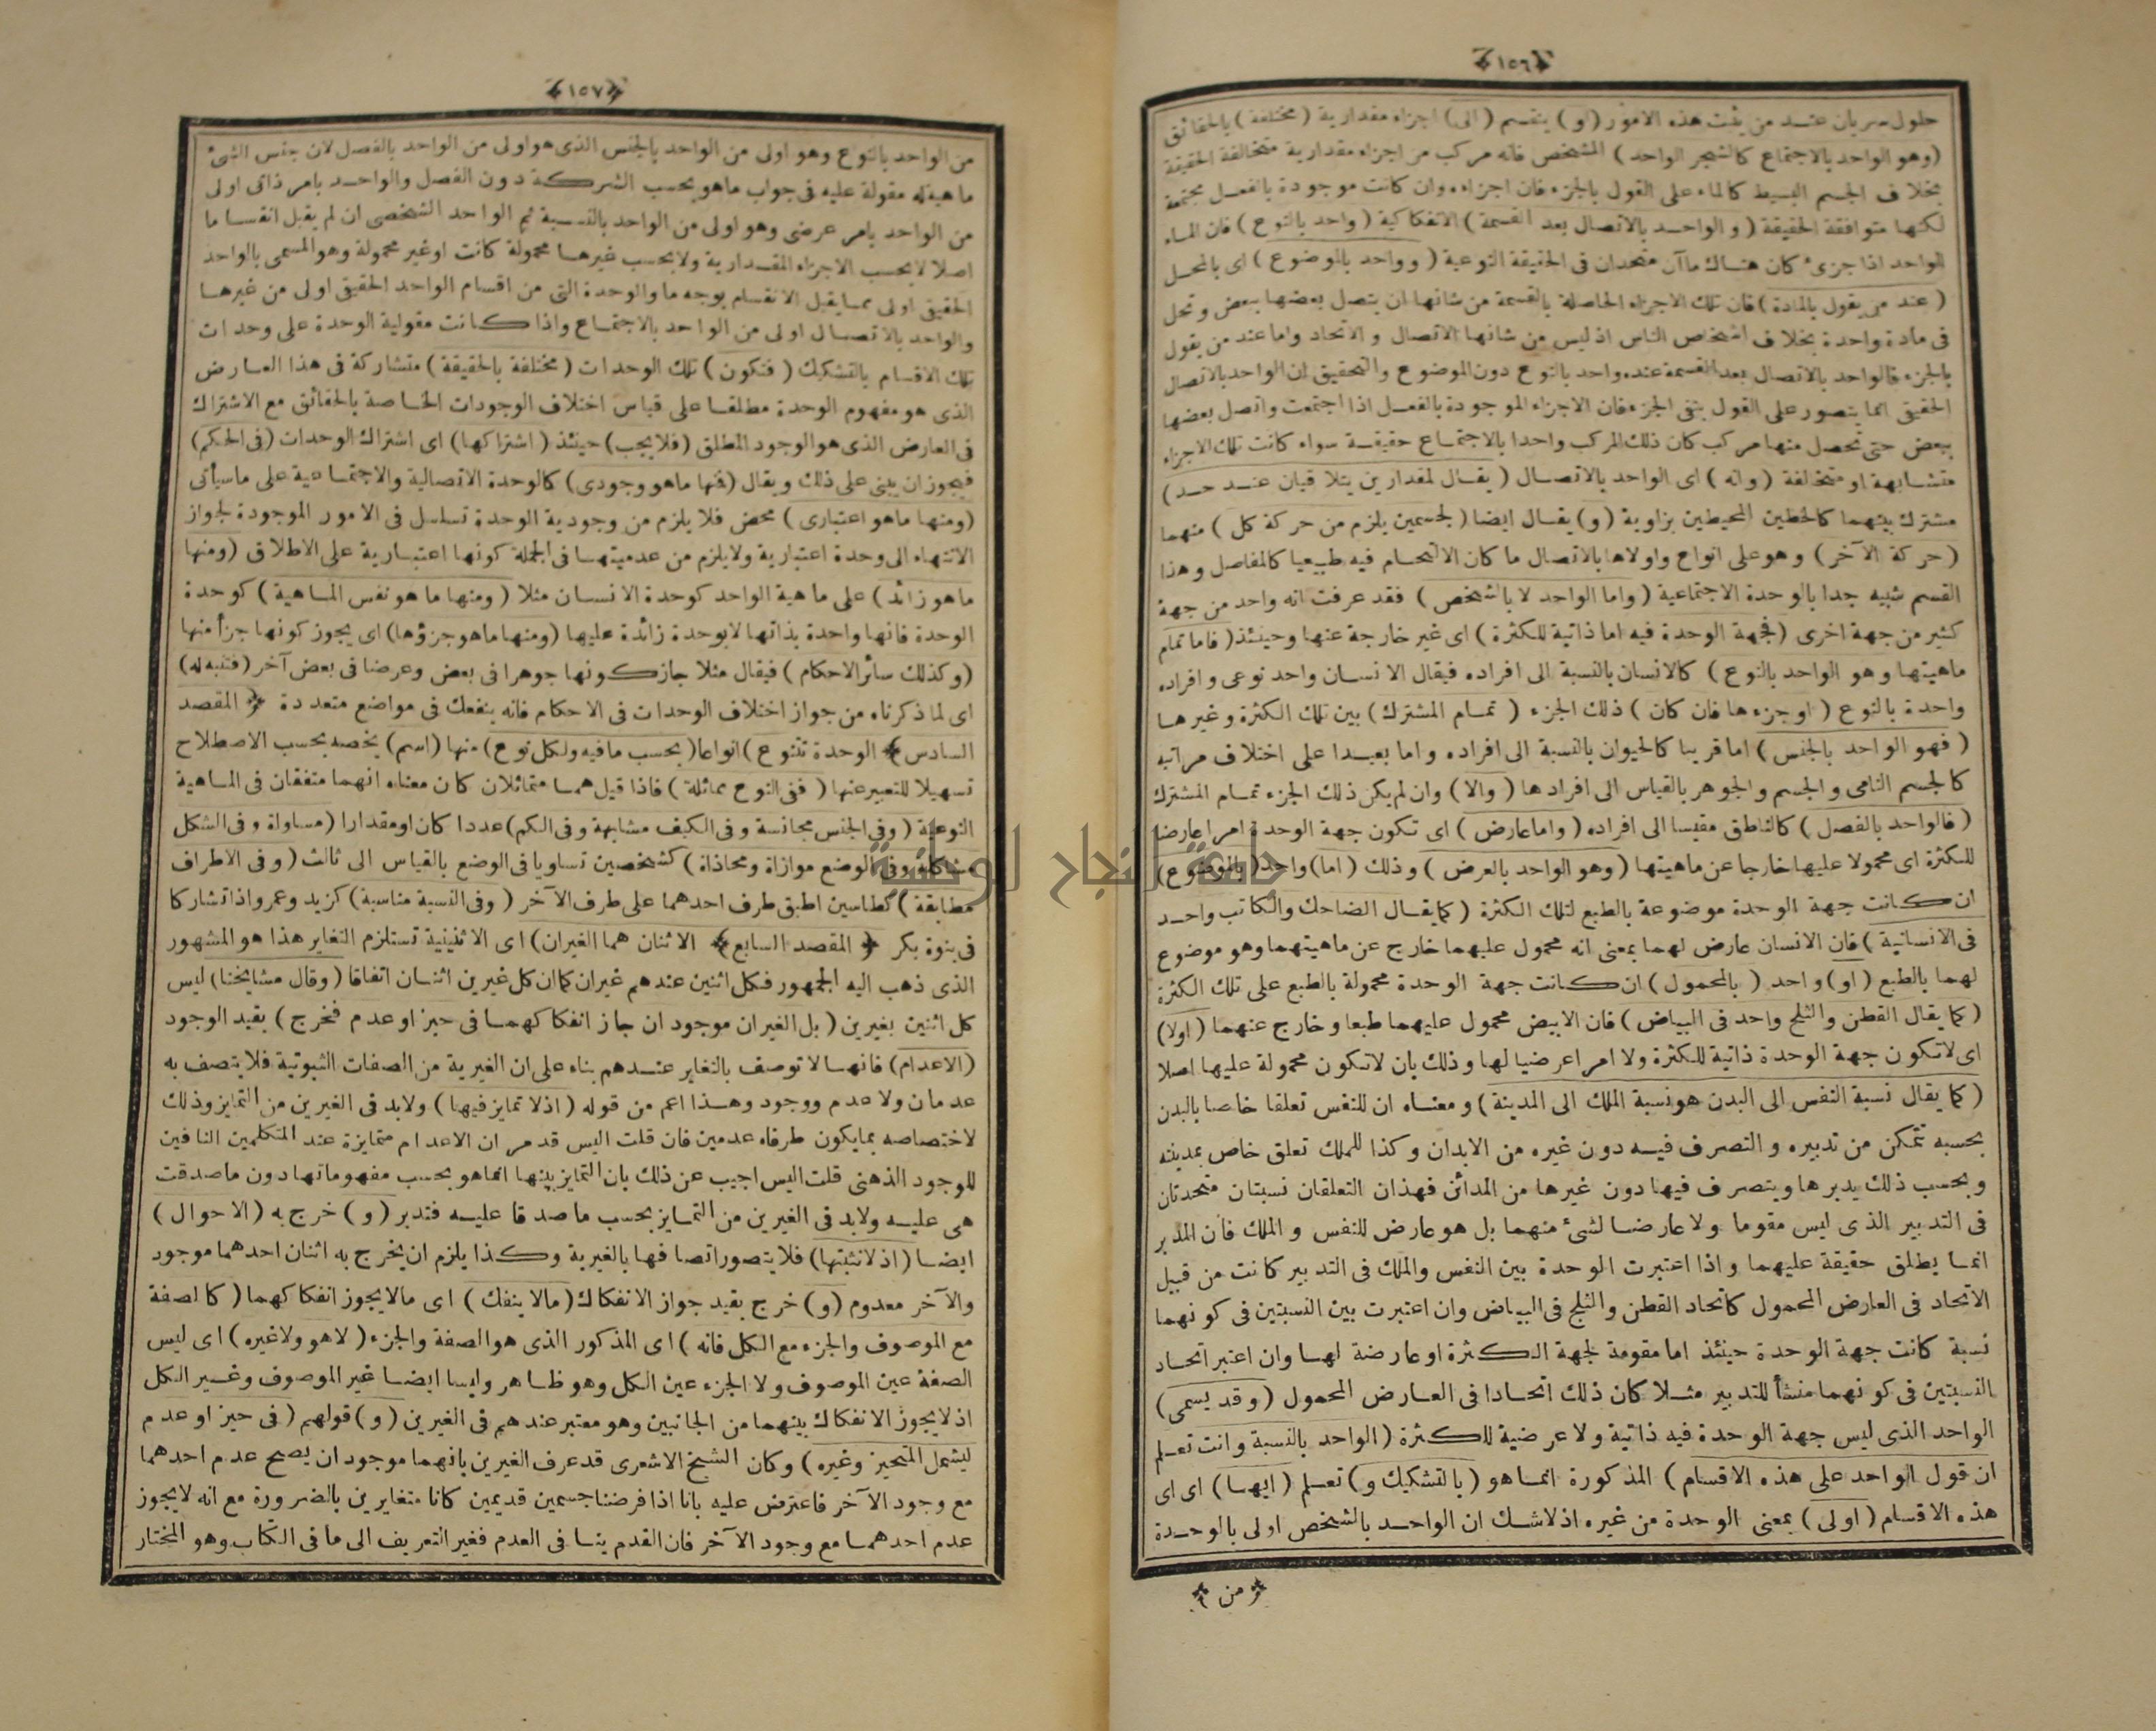 ﴿١٥٦﴾
حلول سريان عند من يثبت هذه الامور (او) ينقسم (الى) اجزاء مقدارية (مختلفة) بالحقائق
(وهو الواحد بالاجتماع كالشجر الواحد) المشخص فانه مركب من اجزاء مقدارية متخالفة الحقيقة
بخلاف الجسم البسيط كالماء على القول بالجزء فان اجزاءه وان كانت موجودة بالفعل مجتمعة
لكنها متوافقة الحقيقة (والواحد بالاتصال بعد القسمة) الانفكاكية (واحد بالنوع) فان الماء
الواحد اذا جزىء كان هناك ماآن متحدان فى الحقيقة النوعية (وواحد بالموضوع) اى بالمحل
(عند من يقول بالمادة) فان تلك الاجزاء الحاصلة بالقسمة من شانها ان يتصل بعضها ببعض وتحل
فى مادة واحدة بخلاف اشخاص الناس اذ ليس من شانها الاتصال والاتحاد واما عند من يقول
بالجزء فالواحد بالاتصال بعد القسمة عنده واحد بالنوع دون الموضوع والتحقيق ان الواحد بالاتصال
الحقيقى انما يتصور على القول بنفى الجزء فان الاجزاء الموجودة بالفعل اذا اجتمعت واتصل بعضها
ببعض حتى تحصل منها مركب كان ذلك المركب واحدا بالاجتماع حقيقة سواء كانت تلك الاجزاء
متشابهة او متخالفة (وانه) اى الواحد بالاتصال (يقال لمقدارين يتلاقيان عند حد)
مشترك بينهما كالخطين المحيطين بزاوية (و) يقال ايضا (لجسمين يلزم من حركة كل) منهما
(حركة الآخر) وهو على انواع واولاها بالاتصال ما كان الالتحام فيه طبيعيا كالمفاصل وهذا
القسم شبيه جدا بالوحدة الاجتماعية (واما الواحد لا بالشخص) فقد عرفت انه واحد من جهة
كثير من جهة اخرى (فجهة الوحدة فيه اما ذاتية للكثرة) اى غير خارجة عنها وحينئذ (فاما تمام
ماهيتها وهو الواحد بالنوع) كالانسان بالنسبة الى افراده فيقال الانسان واحد نوعى وافراده
واحدة بالنوع (او جزءها فان كان) ذلك الجزء (تمام المشترك) بين تلك الكثرة وغيرها
(فهو الواحد بالجنس) اما قريبا كالحيوان بالنسبة الى افراده واما بعيدا على اختلاف مراتبه
كالجسم النامى والجسم والجوهر بالقياس الى افرادها (والا) وان لم يكن ذلك الجزء تمام المشترك
(فالواحد بالفصل) كالناطق مقيسا الى افراده (واما عارض) اى تكون جهة الوحدة امرا عارضا
للكثرة اى محمولا عليها خارجا عن ماهيتها (وهو الواحد بالعرض) وذلك (اما) واحد (بالموضوع)
ان كانت جهة الوحدة موضوعة بالطبع لتلك الكثرة (كما يقال الضاحك والكاتب واحد
فى الانسانية) فان الانسان عارض لهما بمعنى انه محمول عليهما خارج عن ماهيتهما وهو موضوع
لهما بالطبع (او) واحد (بالمحمول) ان كانت جهة الوحدة محمولة بالطبع على تلك الكثرة
(كما يقال القطن والثلج واحد فى البياض) فان الابيض محمول عليهما طبعا وخارج عنهما (اولا)
اى لا تكون جهة الوحدة ذاتية للكثرة ولا امرا عرضيا لها وذلك بان لا تكون محمولة عليها اصلا
(كما يقال نسبة النفس الى البدن هو نسبة الملك الى المدينة) ومعناه ان للنفس تعلقا خاصا بالبدن
بحسبه تتمكن من تدبيره والتصرف فيه دون غيره من الابدان وكذا للملك تعلق خاص بمدينته
وبحسب ذلك يدبرها ويتصرف فيها دون غيرها من المدائن فهذان التعلقان نسبتان متحدتان
فى التدبير الذى ليس مقوما ولا عارضا لشىء منهما بل هو عارض للنفس والملك فان المدبر
انما يطلق حقيقة عليهما واذا اعتبرت الوحدة بين النفس والملك فى التدبير كانت من قبيل
الاتحاد فى العارض المحمول كاتحاد القطن والثلج فى البياض وان اعتبرت بين النسبتين فى كونهما
نسبة كانت جهة الوحدة حينئذ اما مقومة لجهة الكثرة او عارضة لها وان اعتبر اتحاد
النسبتين فى كونهما منشأ للتدبير مثلا كان ذلك اتحادا فى العارض المحمول (وقد يسمى)
الواحد الذى ليس جهة الوحدة فيه ذاتية ولا عرضية للكثرة (الواحد بالنسبة وانت تعلم
ان قول الواحد على هذه الاقسام) المذكورة انما هو (بالتشكيك و) تعلم (ايها) اى اى
هذه الاقسام (اولى) بمعنى الوحدة من غيره اذ لاشك ان الواحد بالشخص اولى بالوحدة
﴿من﴾
﴿١٥٧﴾
من الواحد بالنوع وهو اولى من الواحد بالجنس الذى هو اولى من الواحد بالفصل لان جنس الشىء
ماهية له مقولة عليه فى جواب ما هو بحسب الشركة دون الفصل والواحد بامر ذاتى اولى
من الواحد بامر عرضى وهو اولى من الواحد بالنسبة ثم الواحد الشخصى ان لم يقبل انقساما
اصلا لا بحسب الاجزاء المقدارية ولا بحسب غيرها محمولة كانت او غير محمولة وهو المسمى بالواحد
الحقيقى اولى مما يقبل الانقسام بوجه ما والوحدة التى من اقسام الواحد الحقيقى اولى من غيرها
والواحد بالاتصال اولى من الواحد بالاجتماع واذا كانت مقولية الوحدة على وحدات
تلك الاقسام بالتشكيك (فتكون) تلك الوحدات (مختلفة بالحقيقة) متشاركة فى هذا العارض
الذى هو مفهوم الوحدة مطلقا على قياس اختلاف الوجودات الخاصة بالحقائق مع الاشتراك
فى العارض الذى هو الوجود المطلق (فلا يجب) حينئذ (اشتراكها) اى اشتراك الوحدات (فى الحكم)
فيجوز ان يبنى على ذلك ويقال (فمنها ما هو وجودى) كالوحدة الاتصالية والاجتماعية على ما سيأتى
(ومنها ما هو اعتبارى) محض فلا يلزم من وجودية الوحدة تسلسل فى الامور الموجودة لجواز
الانتهاء الى وحدة اعتبارية ولا يلزم من عدميتها فى الجملة كونها اعتبارية على الاطلاق (ومنها
ما هو زائد) على ماهية الواحد كوحدة الانسان مثلا (ومنها ما هو نفس الماهية) كوحدة
الوحدة فانها واحدة بذاتها لا بوحدة زائدة عليها (ومنها ما هو جزؤها) اى يجوز كونها جزأ منها
(وكذلك سائر الاحكام) فيقال مثلا جاز كونها جوهرا فى بعض وعرضا فى بعض آخر (فتنبه له)
اى لما ذكرناه من جواز اختلاف الوحدات فى الاحكام فانه ينفعك فى مواضع متعددة ﴿المقصد
السادس﴾ الوحدة تتنوع) انواعا (بحسب ما فيه ولكل نوع) منها (اسم) يخصه بحسب الاصطلاح
تسهيلا للتعبير عنها (ففى النوع مماثلة) فاذا قيل هما متماثلان كان معناه انهما متفقان فى الماهية
النوعية (وفى الجنس مجانسة وفى الكيف مشابهة وفى الكم) عددا كان او مقدارا (مساواة وفى الشكل
مشاكلة وفى الوضع موازاة ومحاذاة) كشخصين تساويا فى الوضع بالقياس الى ثالث (وفى الاطراف
مطابقة) كطاسين اطبق طرف احدهما على طرف الآخر (وفى النسبة مناسبة) كزيد وعمرو اذا تشاركا
فى بنوة بكر ﴿المقصد السابع﴾ الاثنان هما الغيران) اى الاثنينية تستلزم التغاير هذا هو المشهور
الذى ذهب اليه الجمهور فكل اثنين عندهم غيران كما ان كل غيرين اثنان اتفاقا (وقال مشايخنا) ليس
كل اثنين بغيرين (بل الغيران موجودان جاز انفكاكهما فى حيز او عدم فخرج) بقيد الوجود
(الاعدام) فانها لا توصف بالتغاير عندهم بناء على ان الغيرية من الصفات الثبوتية فلا يتصف به
عدمان ولا عدم ووجود وهذا اعم من قوله (اذ لا تمايز فيها) ولابد فى الغيرين من التمايز وذلك
لاختصاصه بما يكون طرفاه عدمين فان قلت اليس قد مر ان الاعدام متمايزة عند المتكلمين النافين
للوجود الذهنى قلت اليس اجيب عن ذلك بان التمايز بينها انما هو بحسب مفهوماتها دون ما صدقت
هى عليه ولابد فى الغيرين من التمايز بحسب ما صدقا عليه فتدبر (و) خرج به (الاحوال)
ايضا (اذ لا نثبتها) فلا يتصور اتصافها بالغيرية وكذا يلزم ان يخرج به اثنان احدهما موجود
والآخر معدوم (و) خرج بقيد جواز الانفكاك (مالا ينفك) اى مالا يجوز انفكاكهما (كالصفة
مع الموصوف والجزء مع الكل فانه) اى المذكور الذى هو الصفة والجزء (لا هو ولا غيره) اى ليس
الصفة عين الموصوف ولا الجزء عين الكل وهو ظاهر وليسا ايضا غير الموصوف وغير الكل
اذ لا يجوز الانفكاك بينهما من الجانبين وهو معتبر عندهم فى الغيرين (و) قولهم (فى حيز او عدم
ليشمل المتحيز وغيره) وكان الشيخ الاشعرى قد عرف الغيرين بانهما موجودان يصح عدم احدهما
مع وجود الآخر فاعترض عليه بانا اذا فرضنا جسمين قديمين كانا متغايرين بالضرورة مع انه لا يجوز
عدم احدهما مع وجود الآخر فان القدم ينافى العدم فغير التعريف الى ما فى الكتاب وهو المختار
جامعة النجاح الوطنية